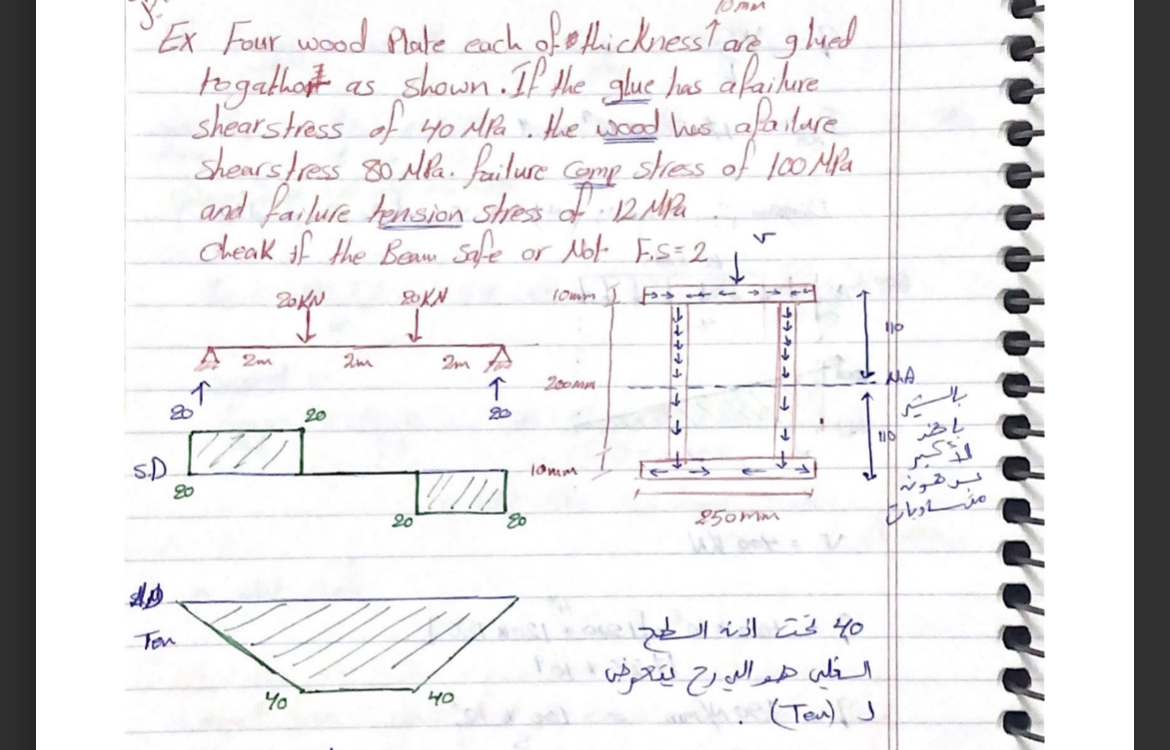 10mm
Ex Four wood Plate each of thickness are glued
togather as shown. If the glue has a failure
shear stress of 40 MPa. the wood has a failure
shear stress 80 MPa. failure comp stress of 100 MPa
and failure tension stress of 12 MPa.
Cheak if the Beam Safe or Not F.S=2
V
20KN 20KN
10mm
2m 2m 2m
110
200mm
N.A
20 20
20
بالستير
ناخذ
الأكبر
110
بس هونه
متساويات
S.D
10mm
20
20 20
250mm
Ten
40 تحت اذن السطح
السفلي هو الي رح يتعرض
40 40
لـ (Ten).